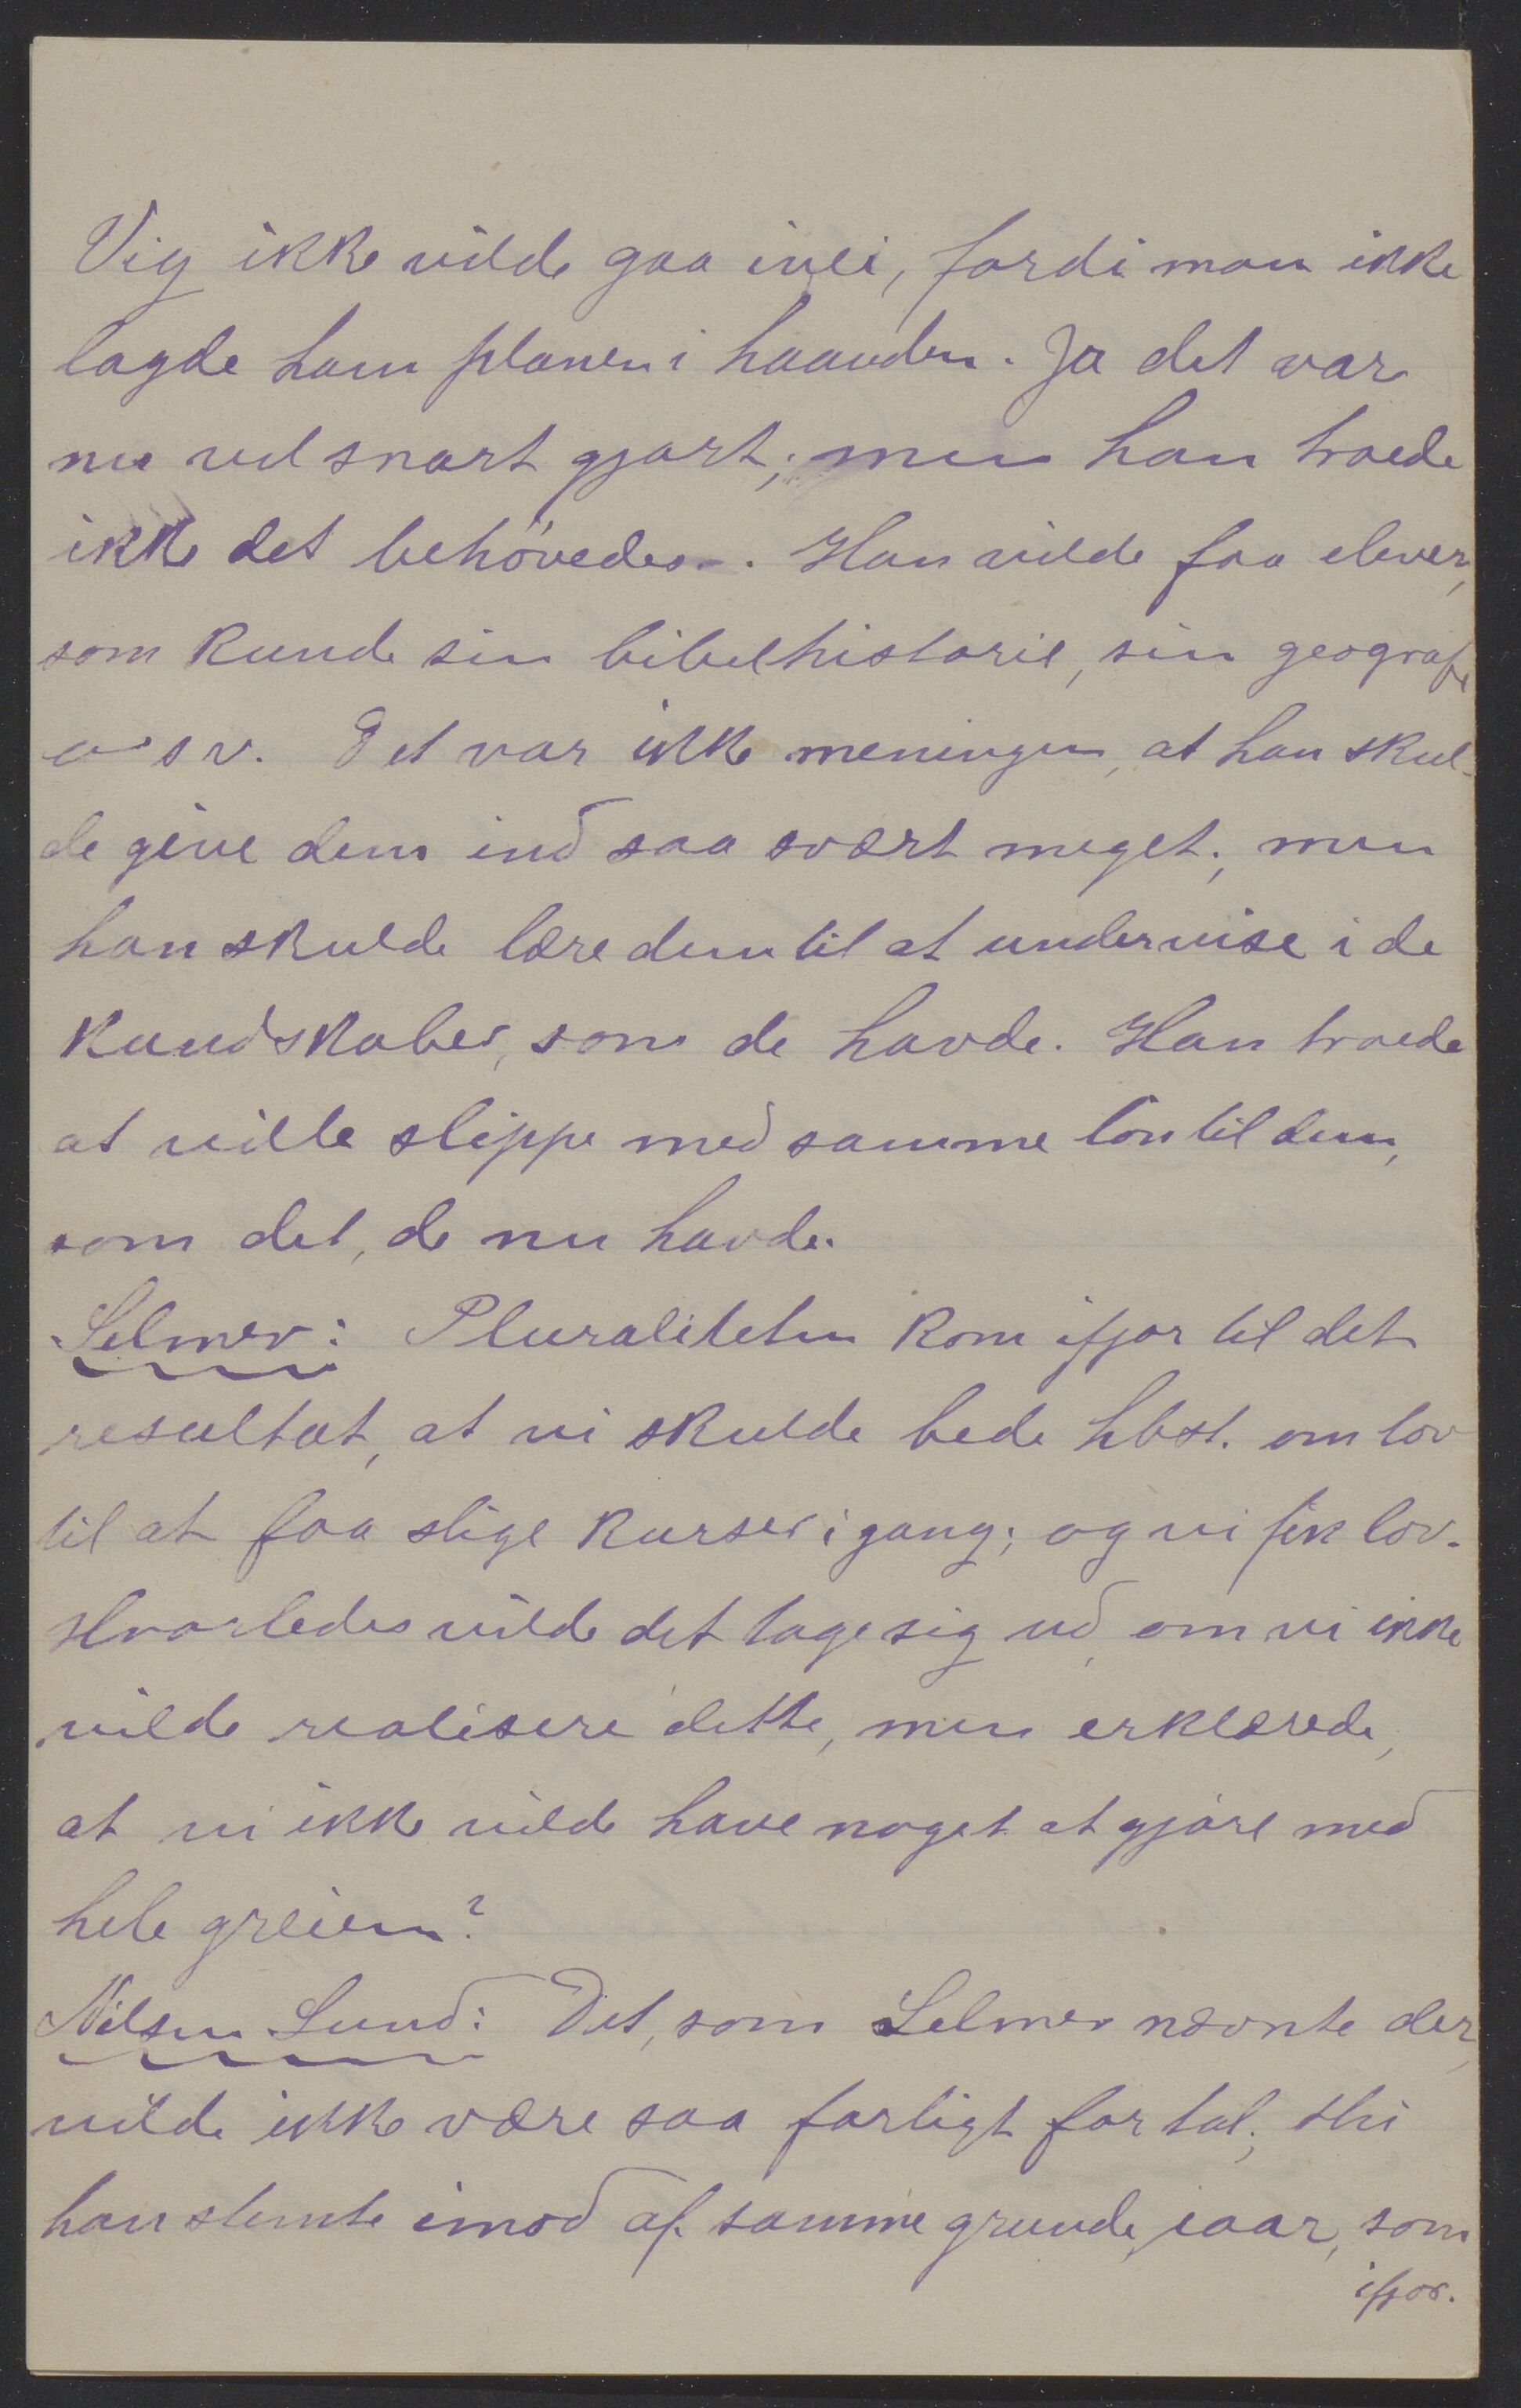 Vig ikke vilde gaa ivei, fordi man ikke
lagde ham planen i haanden. Ja det var
nu vel snart gjort; men han troede
ikke det behövedes. Han vilde faa elever,
som kunde sin bibelhistorie, sin geografi
o s v. Det var ikke meningen, at han skul-
de give dem ind saa svært meget; men
han skulde lære dem til at undervise i de
kundskaber, som de havde. Han troede
at ville slippe med samme lön til dem,
som det, de nu havde.
Selmer: Pluraliteten kom ifjor til det
resultat, at vi skulde bede hbst. om lov
til at faa slige kurser i gang; og vi fik lov.
Hvorledes vilde det tage sig ud, om vi ikke
vilde realisere dette, men erklærede,
at vi ikke vilde have noget at gjöre med
hele greien?
Nilsen Lund: Det, som Selmer nævnte der,
vilde ikke være saa farligt for tal.; thi
han stemte imod af samme grunde iaar, som
ifjor.